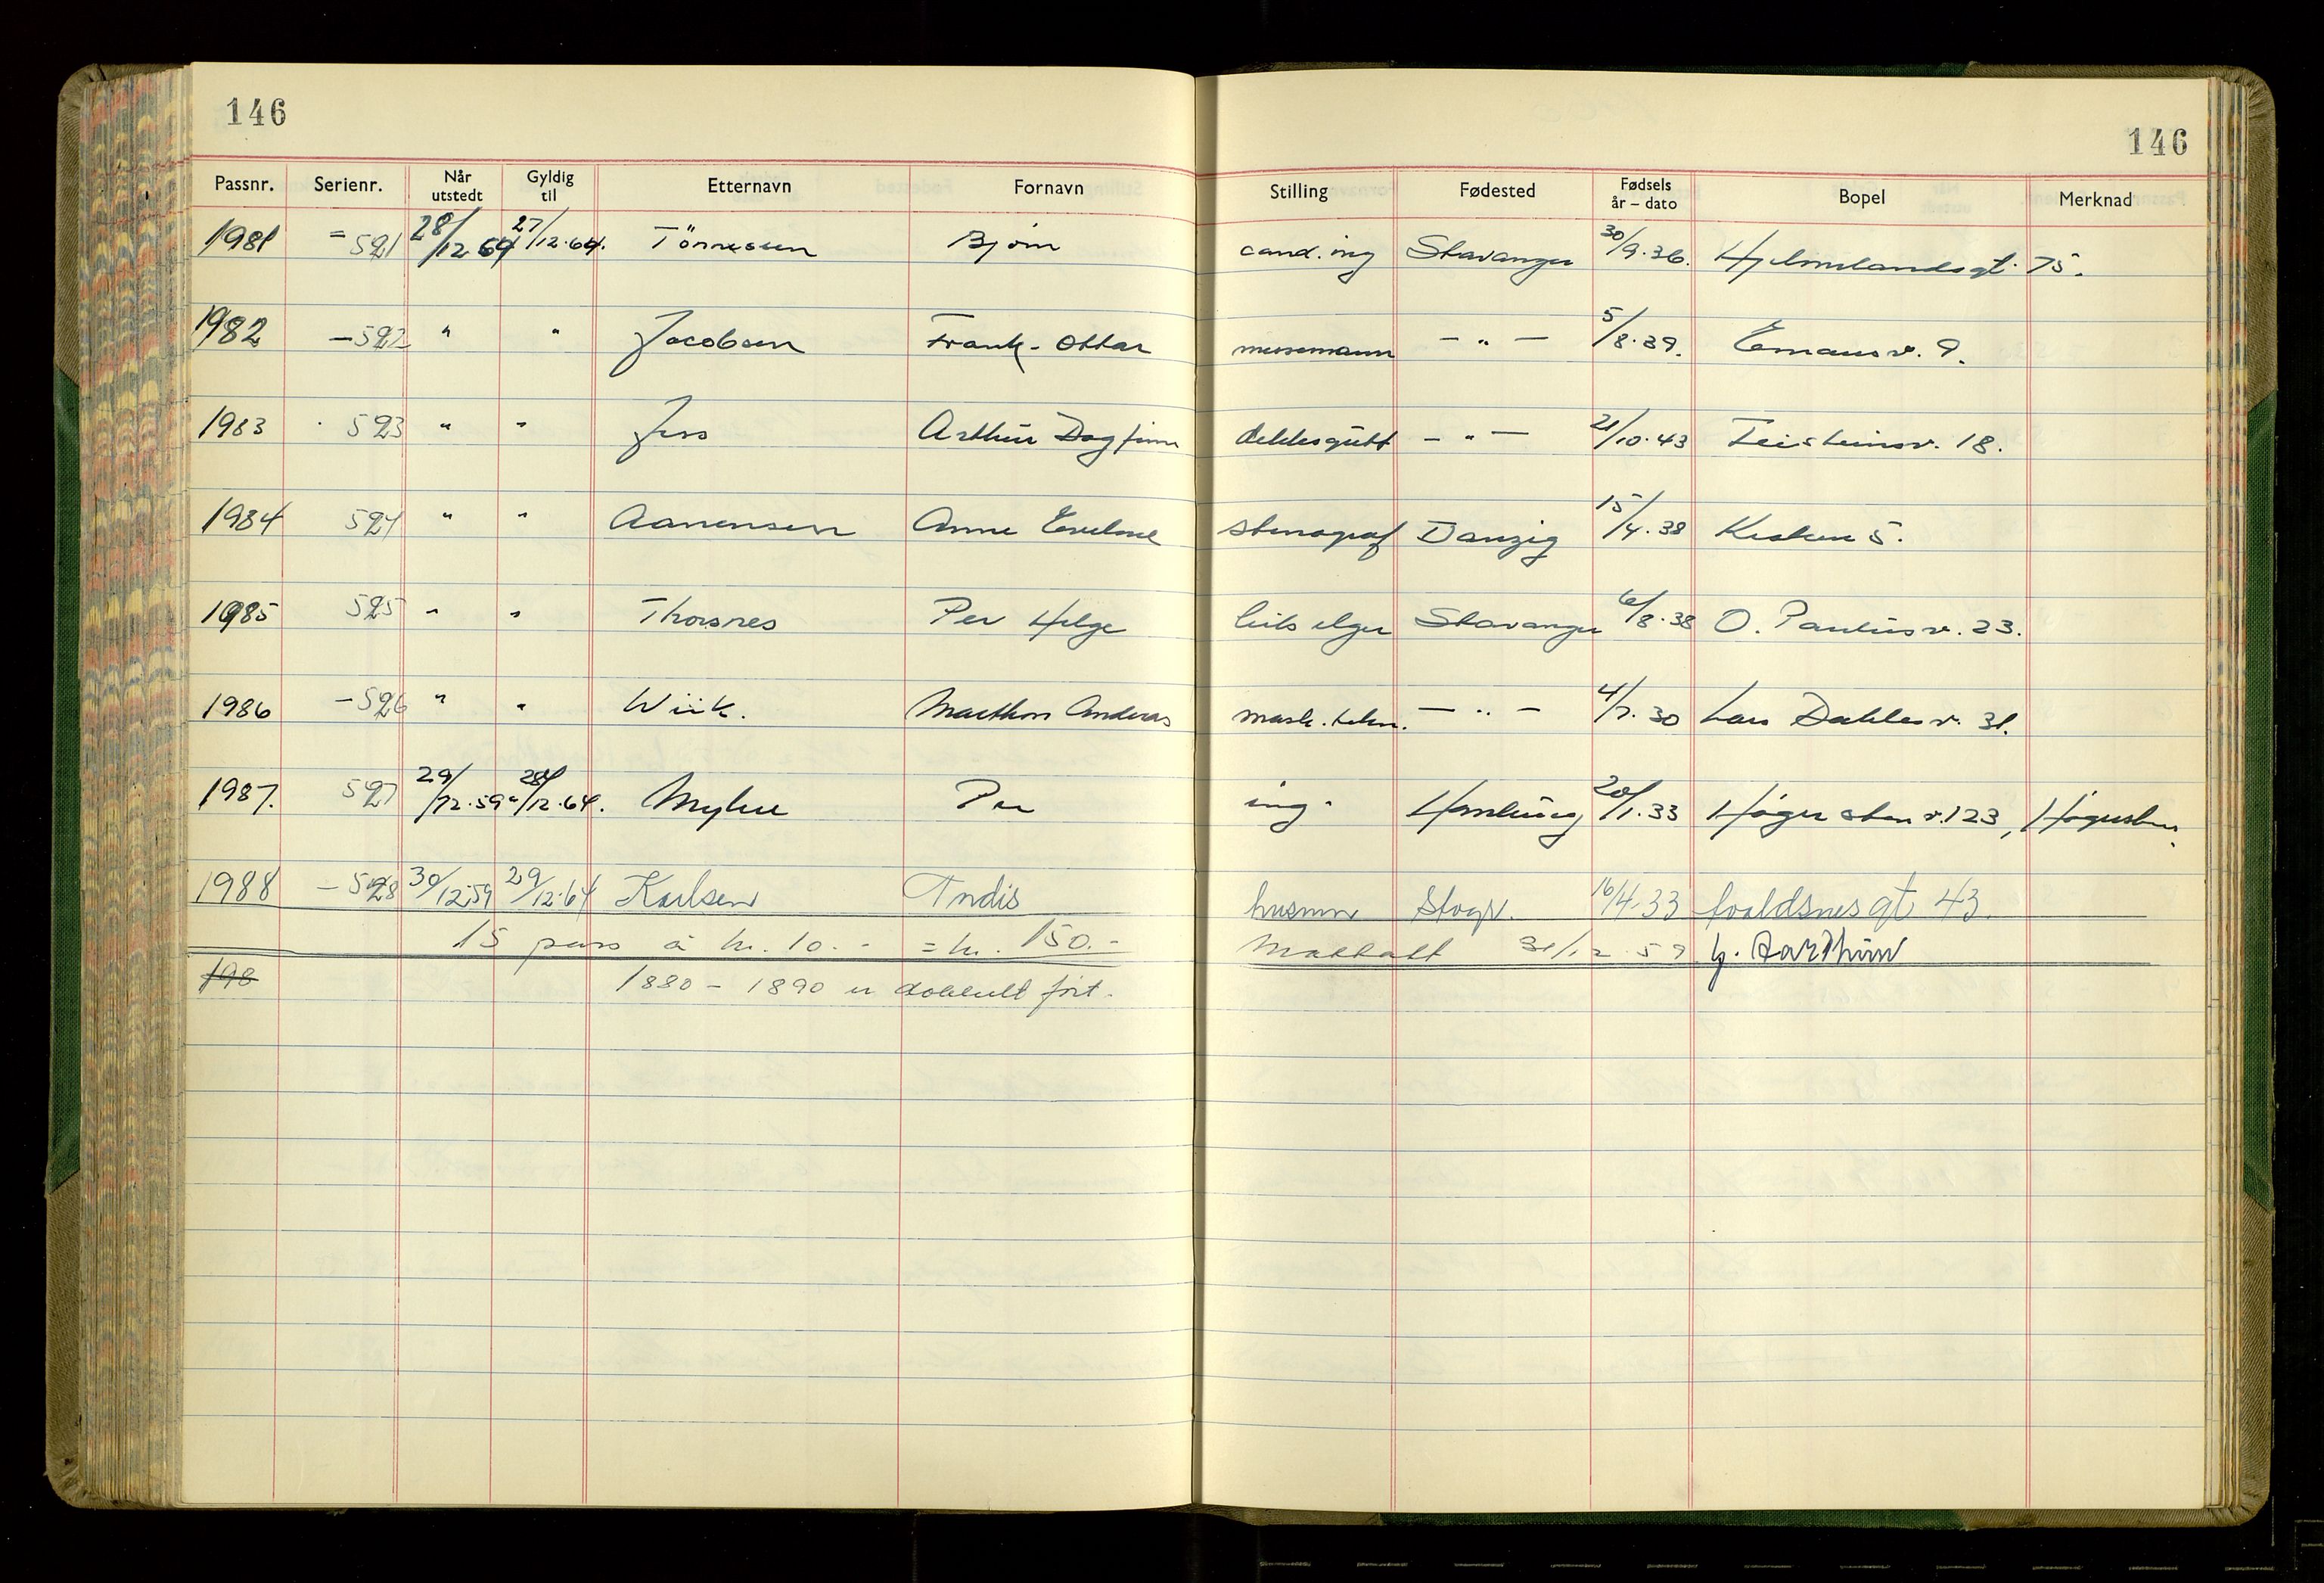 146
146
Passnr. Serienr. Når utstedt Gyldig til Etternavn Fornavn Stilling Fødested Fødsels år – dato Bopel Merknad
1981 = 521 28/12 64 27/12.64. Tönnesen Bjørn cand. ing Stavanger 30/9.36. Hjelmelandsgt. 75.
1982 – 522 " " Jacobsen Frank-Ottar messemann – " – 5/8.39. Emausv. 9.
1983 523 " " Jess Arthur Dagfinn dekksgutt – " – 21/10.43 Feisteinsv. 18.
1984 524 " " Aanensen Anne stenograf Danzig 15/4.38 Kirken 5.
1985 525 " " Thorsnes Per Helge Stavanger 6/8.38 O. Paulusv. 23.
1986 – 526 " " Wiik. Marthon Andreas mask. tekn. – " – 4/7.30 Lars Dahlesv. 31.
1987. 527 29/12.59 28/12.64. Myhre Per ing. Hamburg 20/1.33 Høgerstenv. 123, Högersten.
1988 – 528 30/12.59 29/12.64 Karlsen Tndis husmor Stvgr. 16/4.33 Avaldsnesgt 43.
15 pass á kr. 10.- = kr. 150.- Mottatt 31/12.59
198 1880 – 1890 er dobbelt ført.